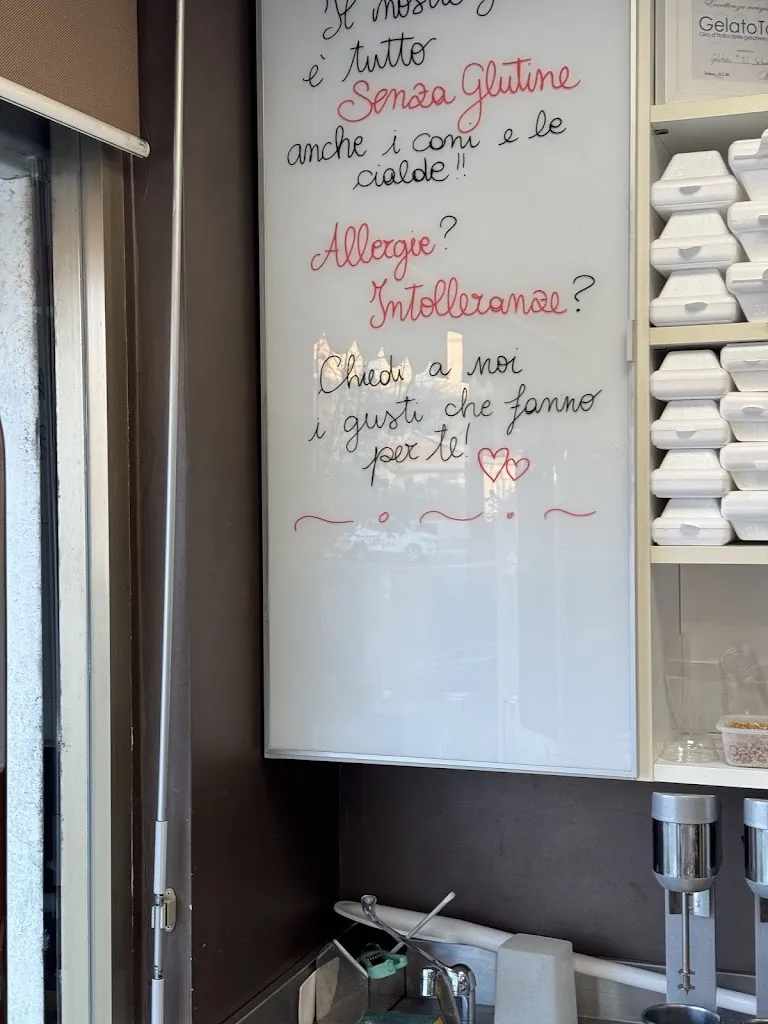 Il nostro
è tutto
Senza Glutine
anche i coni e le
cialde!!
Allergie?
Intolleranze?
Chiedi a noi
i gusti che fanno
per te!
GelatoTo